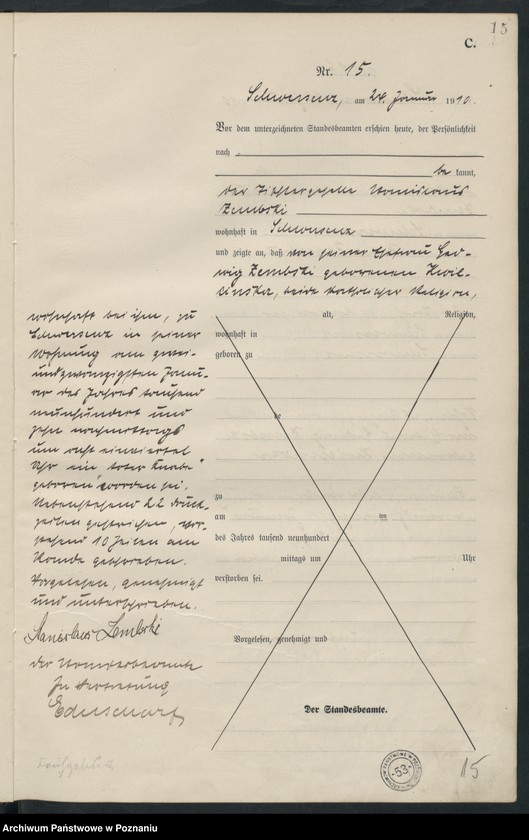 15
C.
Nr. 15.
Schwersenz, am 24. Januar 1910.
Vor dem unterzeichneten Standesbeamten erschien heute, der Persönlichkeit
nach
be kannt,
der Tischlergeselle Stanislaus
Zembski
wohnhaft in Schwersenz
und zeigte an, daß von seiner Ehefrau Hed-
wig Zembski geborenen Kwil-
beide katholischer Religion,
wohnhaft bei ihm, zu
Schwersenz in seiner
Wohnung am zwei-
undzwanzigsten Janu-
ar des Jahres tausend
neunhundert und
zehn nachmittags
um acht einviertel
Uhr ein toter Knabe
geboren worden sei.
Nebenstehend 22 Druck-
zeilen gestrichen, vor-
stehend 10 Zeilen am
Rande geschrieben.
Vorgelesen, genehmigt
und unterschrieben.
Stanislaus Zembski
Der Standesbeamte
In Vertretung
alt, Religion,
wohnhaft in
geboren zu
be
zu
am ten
des Jahres tausend neunhundert
mittags um Uhr
verstorben sei.
Vorgelesen, genehmigt und
Der Standesbeamte.
53
15
Archiwum Państwowe w Poznaniu